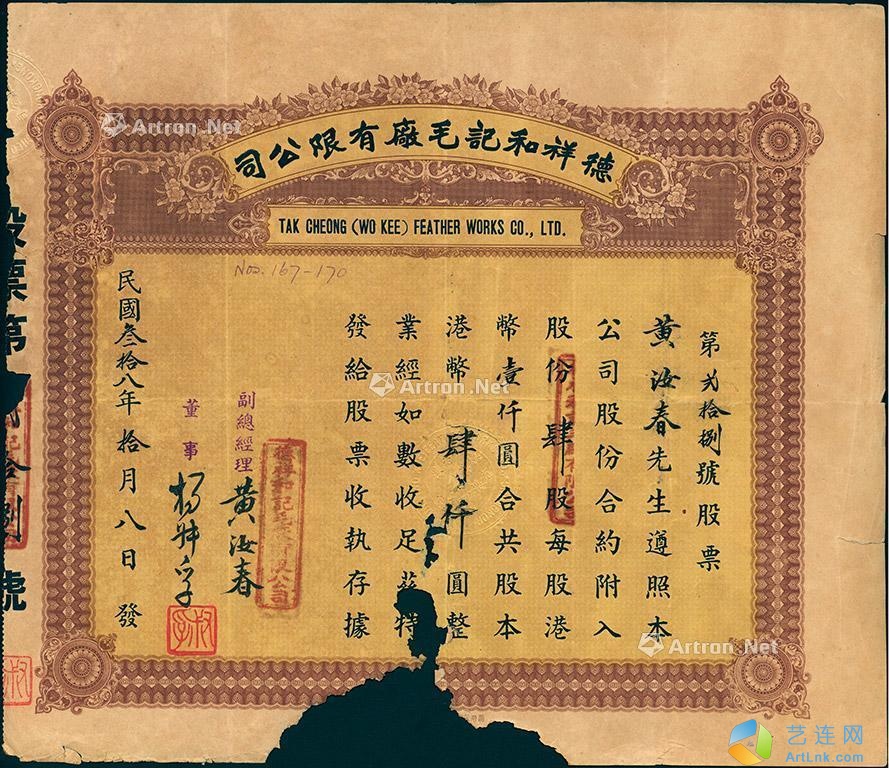 德祥和記毛廠有限公司
TAK CHEONG (WO KEE) FEATHER WORKS CO., LTD.
Nos. 167-170
第弍拾捌號股票
黃汝春先生遵照本
公司股份合約附入
股份肆股每股港
幣壹仟圓合共股本
港幣肆仟圓整
業經如數收足茲特
發給股票收執存據
副總經理
黃汝春
德祥和記毛廠有限公司
董事
民國叁拾八年拾月八日發
股票第
拾捌號
Artron.Net
Artron.Net
Artron.Net
艺连网
ArtLnk.com